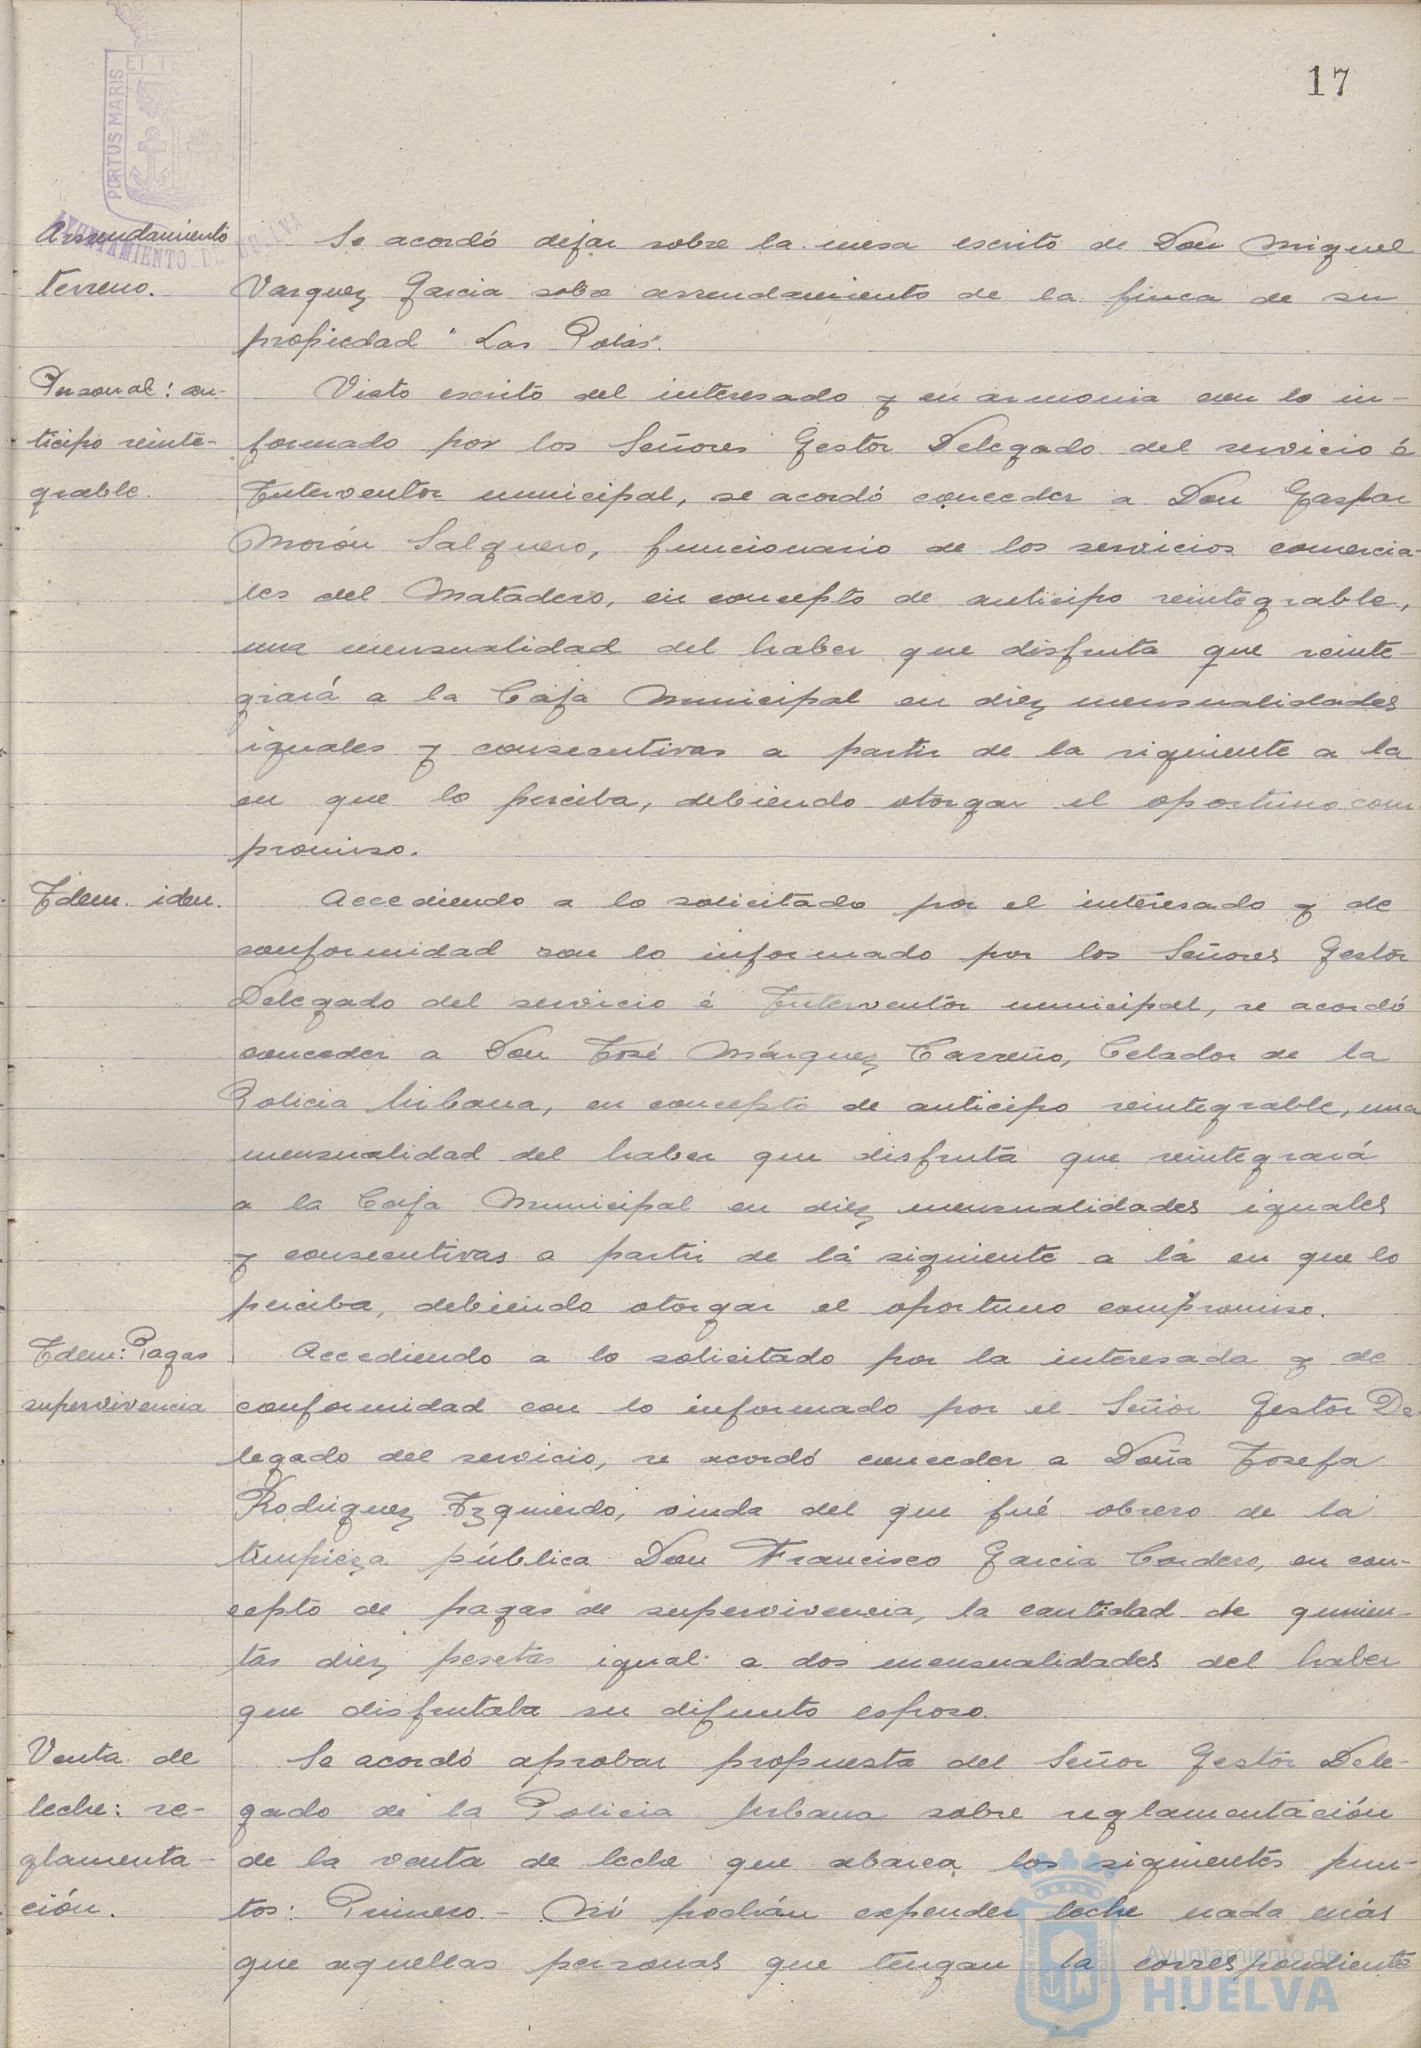 17
PORTUS MARIS
AYUNTAMIENTO DE HUELVA
Arrendamiento
terreno.
Se acordó dejar sobre la mesa escrito de Don Miguel
Vazquez Garcia sobre arrendamiento de la finca de su
propiedad "Las Polas".
Personal: an-
ticipo reinte-
grable.
Visto escrito del interesado y en armonia con lo in-
formado por los Señores Gestor Delegado del servicio é
Interventor municipal, se acordó conceder a Don Gaspar
Morón Salguero, funcionario de los servicios comercia-
les del Matadero, en concepto de anticipo reintegrable,
una mensualidad del haber que disfruta que reinte-
grará a la Caja Municipal en diez mensualidades
iguales y consecutivas a partir de la siguiente a la
en que lo perciba, debiendo otorgar el oportuno com-
promiso.
Idem. iden.
Accediendo a lo solicitado por el interesado y de
conformidad con lo informado por los Señores Gestor
Delegado del servicio é Interventor municipal, se acordó
conceder a Don José Márquez Carreño, Celador de la
Policia Urbana, en concepto de anticipo reintegrable, una
mensualidad del haber que disfruta que reintegrará
a la Caja Municipal en diez mensualidades iguales
y consecutivas a partir de la siguiente a la en que lo
perciba, debiendo otorgar el oportuno compromiso.
Idem: Pagas
supervivencia
Accediendo a lo solicitado por la interesada y de
conformidad con lo informado por el Señor Gestor De-
legado del servicio, se acordó conceder a Doña Josefa
Rodriguez Izquierdo, viuda del que fué obrero de la
limpieza pública Don Francisco Garcia Cordero, en con-
cepto de pagas de supervivencia, la cantidad de quinien-
tas diez pesetas igual a dos mensualidades del haber
que disfrutaba su difunto esposo.
Venta de
leche: re-
glamenta-
ción.
Se acordó aprobar propuesta del Señor Gestor Dele-
gado de la Policia Urbana sobre reglamentación
de la venta de leche que abarca los siguientes pun-
tos: Primero.- No podrán expender leche nada más
que aquellas personas que tengan la correspondiente
Ayuntamiento de
HUELVA